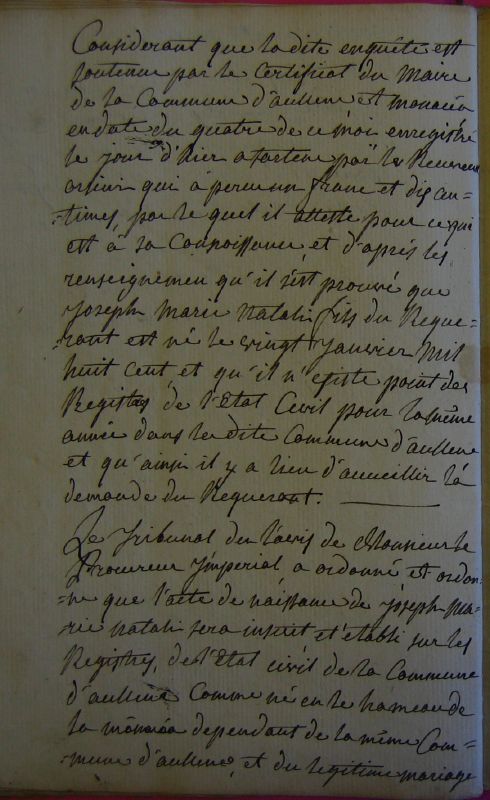 Considerant que la dite enquête est
soutenue par le Certificat du Maire
de la Commune d'aullene et monacia
en date du quatre de ce mois enregistré
le jour d'hier a Sartene par le Receveur
orsini qui a perçu un franc et dix cen=
=times, par le quel il atteste pour ce qui
est à sa Connoissance, et d'après les
renseignemen qu'il s'est procuré que
Joseph Marie Natali fils du Reque=
=rant est né le vingt Janvier Mil
huit Cent et qu'il n'existe point des
Registres de l'Etat Civil pour la même
année dans la dite Commune d'aullene
et qu'ainsi il y a lieu d'accueillir la
demande du Requerant.
Le Tribunal de l'avis de Monsieur le
Procureur Imperial a ordonné et ordon=
=ne que l'acte de naissance de Joseph Ma=
rie Natali sera inscrit et établi sur les
Registres, de l'Etat civil de la Commune
d'aullene Comme né en le hameau de
la monacia dependant de la même Com=
=mune d'aullene, et du legitime mariage